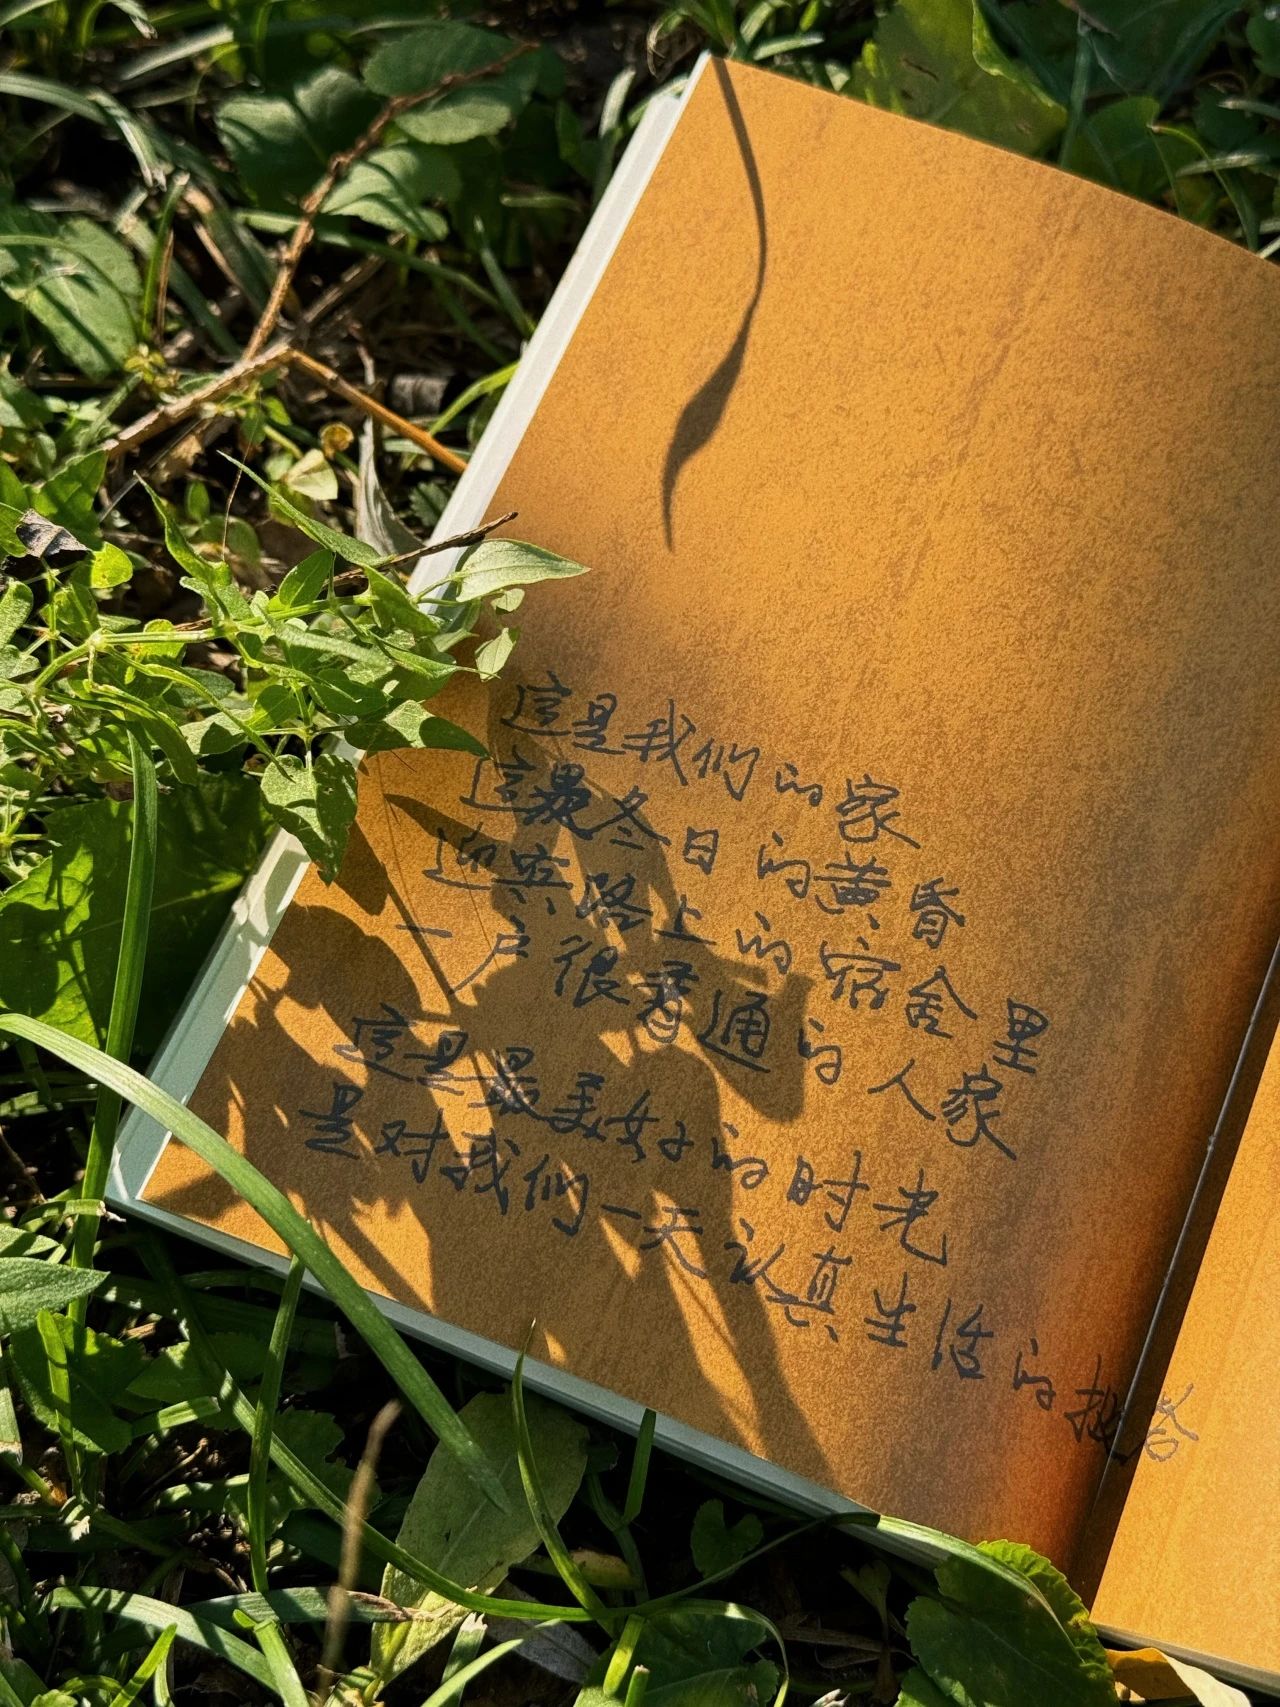 这是我们的家
这是冬日的黄昏
迎宾路上的宿舍里
一户很普通的人家
这是最美好的时光
是对我们一天认真生活的报答